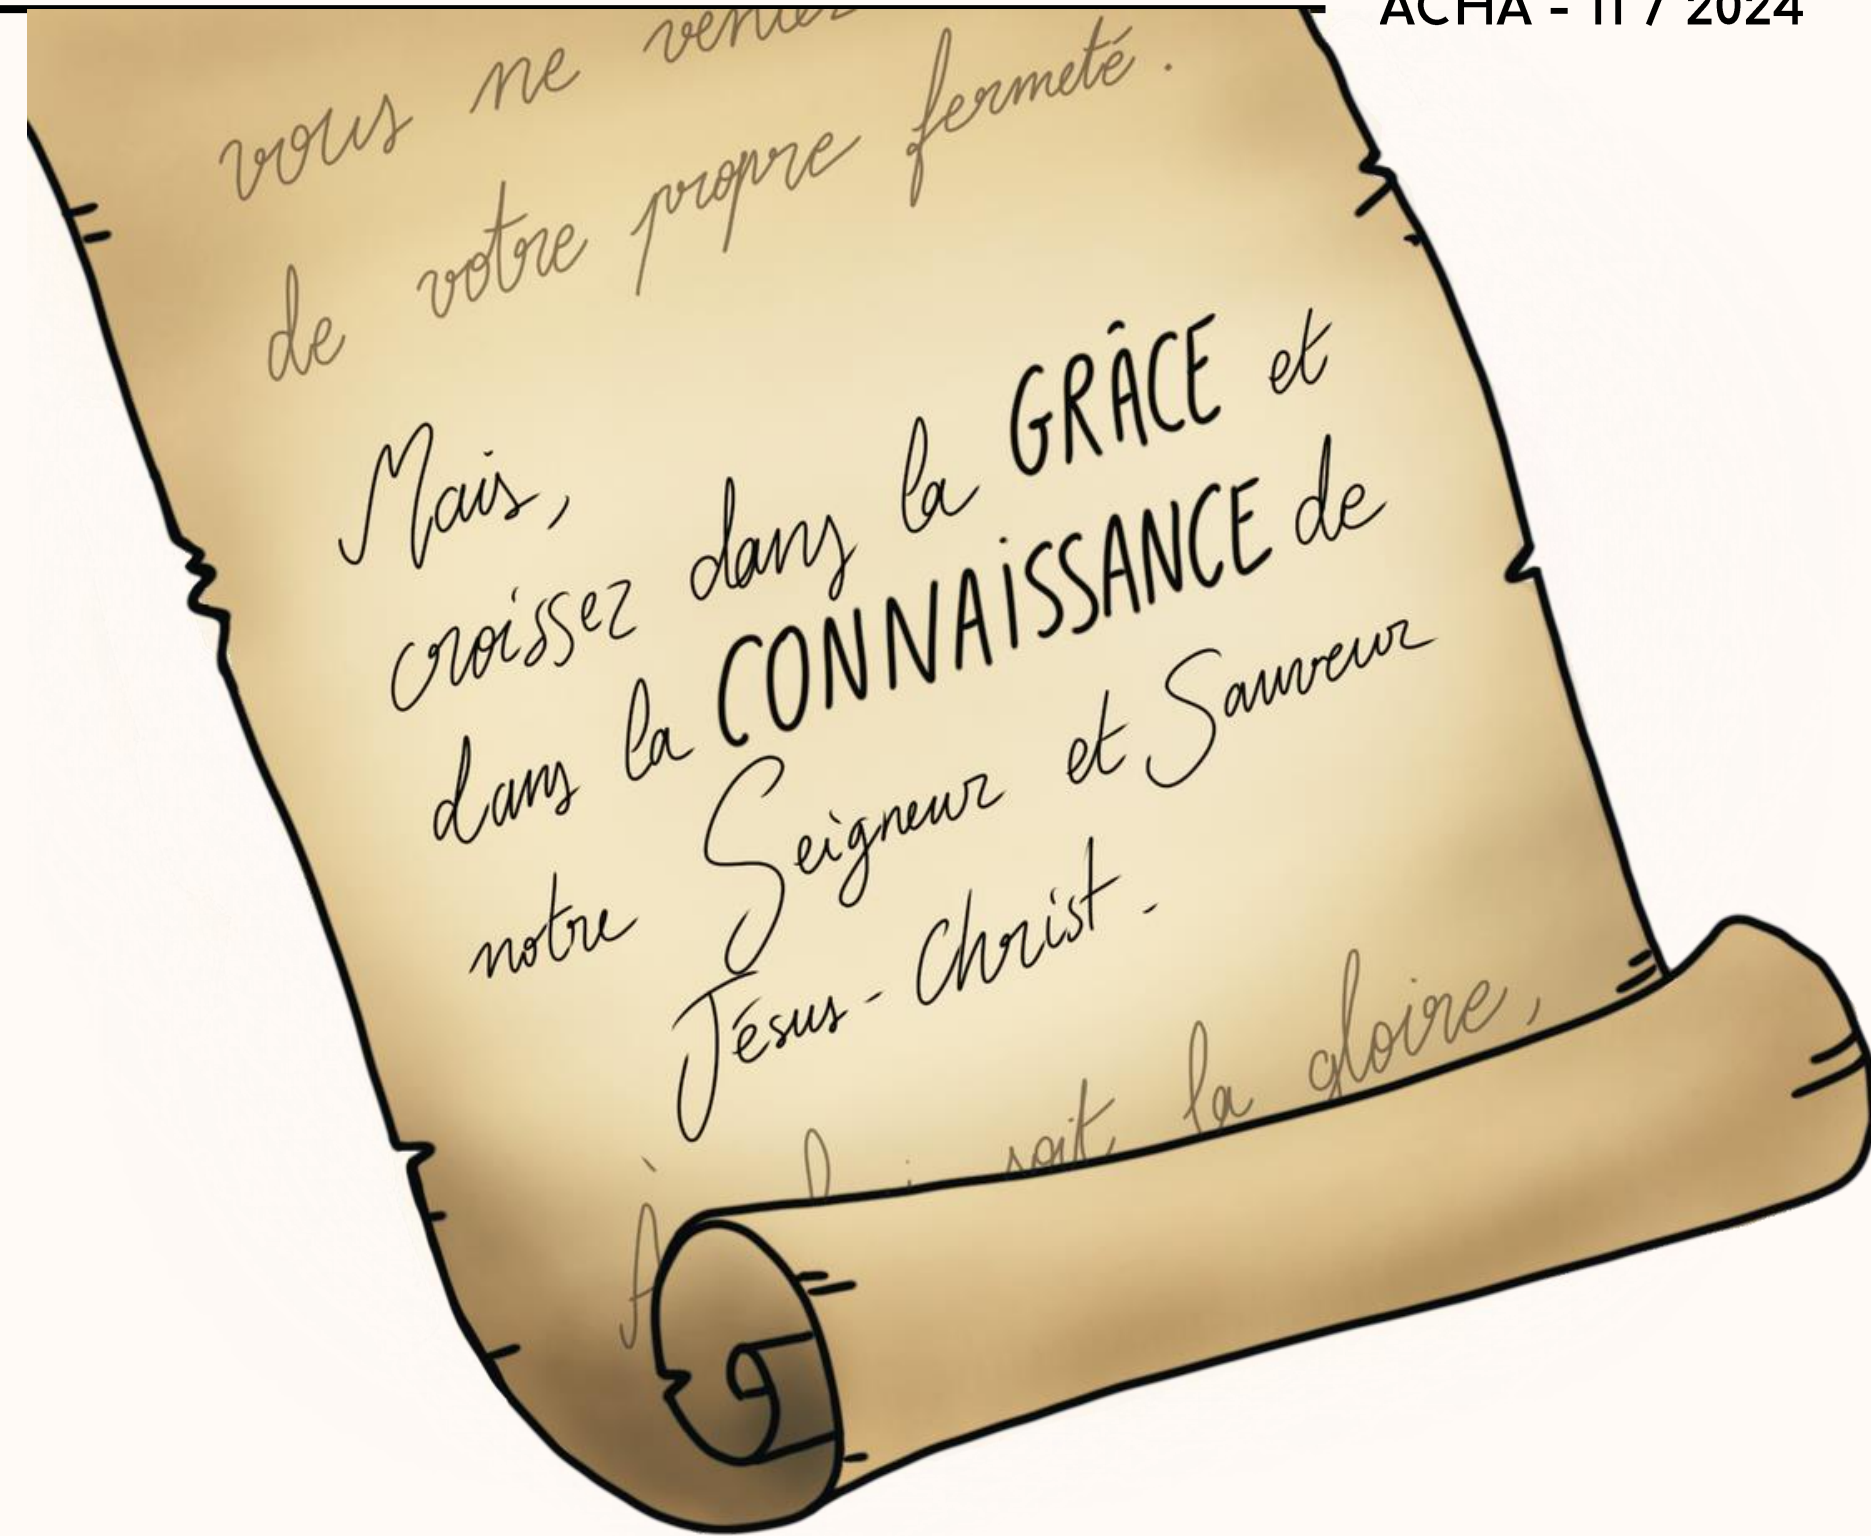 ACHA - 11 / 2024
vous ne
de votre propre fermeté.
Mais,
croissez dans la GRÂCE et
dans la CONNAISSANCE de
notre Seigneur et Sauveur
Jésus-Christ.
À lui soit la gloire,